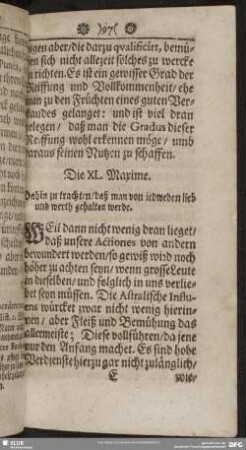 )97(
igen aber/die darzu qvalificirt, bemü-
en sich nicht allezeit solches zu wercke
richten. Es ist ein gewisser Grad der
Reiffung und Vollkommenheit/ ehe
man zu den Früchten eines guten Ver-
standes gelanget: und ist viel dran
gelegen/ daß man die Gradus dieser
Reiffung wohl erkennen möge/ umb
daraus seinen Nutzen zu schaffen.
Die XL. Maxime.
Dahin zu trachten/ daß man von iedweden lieb
und werth gehalten werde.
WEil dann nicht wenig dran lieget/
daß unsere Actiones von andern
bewundert werden/ so gewiß wird noch
höher zu achten seyn/ wenn grosse Leute
in dieselben/ und folglich in uns verlie-
bet seyn müssen. Die Astralische Influ-
ens würcket zwar nicht wenig hierin-
nen/ aber Fleiß und Bemühung das
allermeiste; Diese vollführen/ da jene
nur den Anfang machet. Es sind hohe
Verdienste hierzu gar nicht zulänglich/
E
wie-
SLUB
DFG